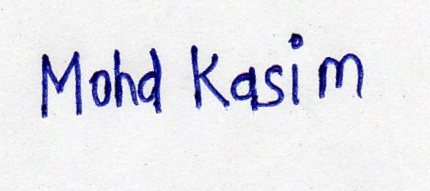 Mohd Kasim